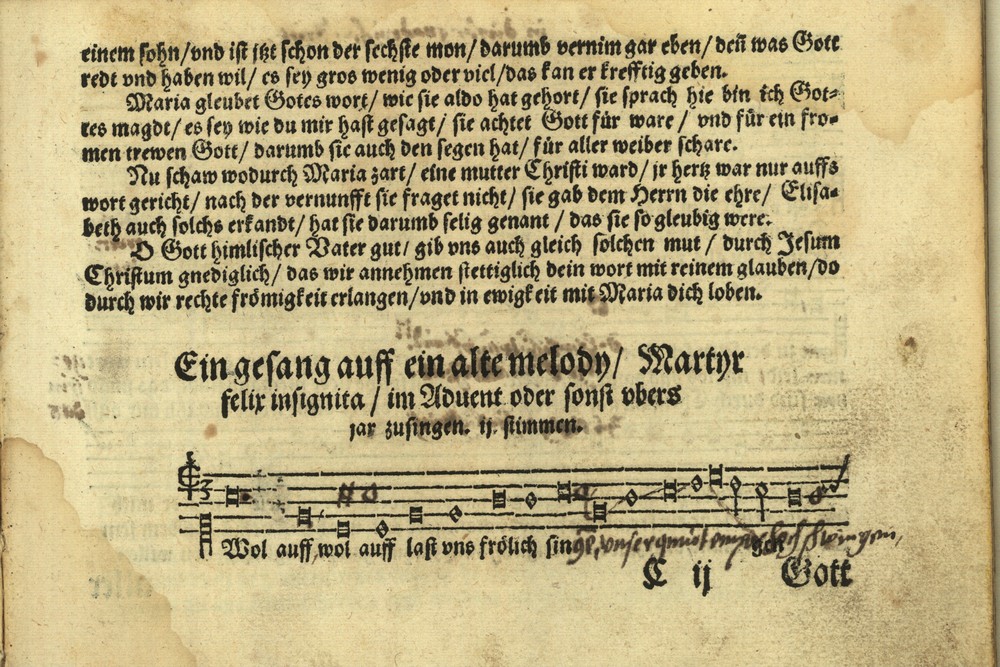 einem sohn/vnd ist itzt schon der sechste mon/darumb vernim gar eben/deñ was Gott
redt vnd haben wil/ es sey gros wenig oder viel/das kan er krefftig geben.
Maria gleubet Gotes wort/ wie sie aldo hat gehort/ sie sprach hie bin ich Got⸗
tes magdt/ es sey wie du mir hast gesagt/ sie achtet Gott für ware/ vnd für ein fro⸗
men trewen Gott/ darumb sie auch den segen hat/ für aller weiber schare.
Nu schaw wodurch Maria zart/ eine mutter Christi ward/ jr hertz war nur auffs
wort gericht/ nach der vernunfft sie fraget nicht/ sie gab dem Herrn die ehre/ Elisa⸗
beth auch solchs erkandt/ hat sie darumb selig genant/ das sie so gleubig were.
O Gott himlischer Vater gut/ gib vns auch gleich solchen mut/ durch Jesum
Christum gnediglich/ das wir annehmen stettiglich dein wort mit reinem glauben/do
durch wir rechte frömigkeit erlangen/vnd in ewigkeit mit Maria dich loben.
Ein gesang auff ein alte melody/ Martyr
felix insignita/ im Aduent oder sonst vbers
jar zusingen. ij. stimmen.
Wol auff,wol auff last vns frölich sin
C ij Gott